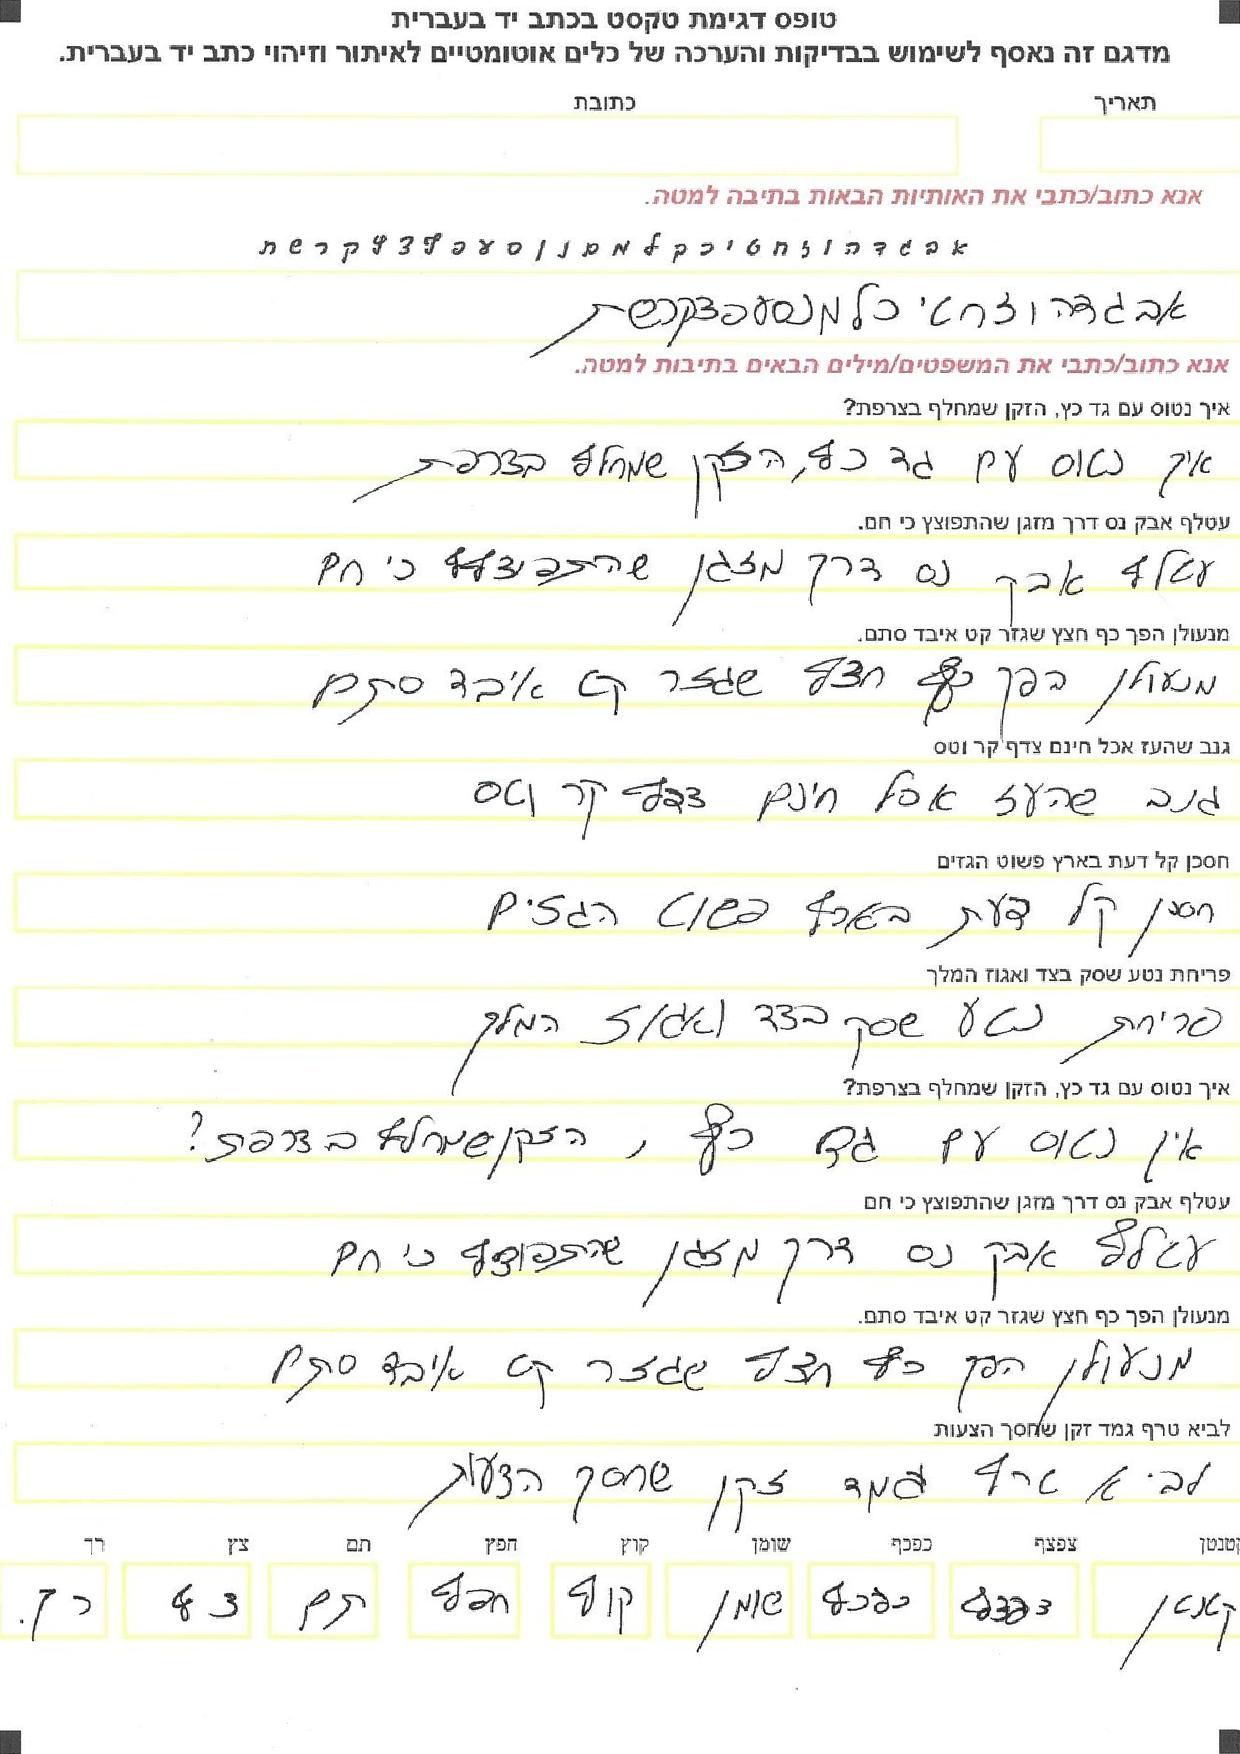 טופס דגימת טקסט בכתב יד בעברית
מדגם זה נאסף לשימוש בבדיקות והערכה של כלים אוטומטיים לאיתור וזיהוי כתב יד בעברית.
תאריך כתובת
אנא כתוב/כתבי את האותיות הבאות בתיבה למטה.
א ב ג ד ה ו ז ח ט י כ ך ל מ ם נ ן ס ע פ ף צ ץ ק ר ש ת
אבגדה וזחטי כל מנסעפצקרשת
אנא כתוב/כתבי את המשפטים/מילים הבאים בתיבות למטה.
איך נטוס עם גד כץ, הזקן שמחלף בצרפת?
איך נטוס עם גד כץ, הזקן שמחלף בצרפת
עטלף אבק נס דרך מזגן שהתפוצץ כי חם.
עטלף אבק נס דרך מזגן שהתפוצץ כי חם
מנעולן הפך כף חצץ שגזר קט איבד סתם.
מנעולן הפך כף חצץ שגזר קט איבד סתם
גנב שהעז אכל חינם צדף קר וטס
גנב שהעז אכל חינם צדף קר וטס
חסכן קל דעת בארץ פשוט הגזים
חסכן קל דעת בארץ פשוט הגזים
פריחת נטע שסק בצד ואגוז המלך
פריחת נטע שסק בצד ואגוז המלך
איך נטוס עם גד כץ, הזקן שמחלף בצרפת?
אין נטוס עם גד כץ , הזקן שמחלף בצרפת?
עטלף אבק נס דרך מזגן שהתפוצץ כי חם
עטלף אבק נס דרך מזגן שהתפוצץ כי חם
מנעולן הפך כף חצץ שגזר קט איבד סתם.
מנעולן הפך כף חצץ שגזר קט איבד סתם
לביא טרף גמד זקן שחסך הצעות
לביא טרף גמד זקן שחסך הצעות
קטנטן צפצף כפכף שומן קוץ חפץ תם צץ רך
קטנטן צפצף כפכף שומן קוץ חפץ תם צץ רך.